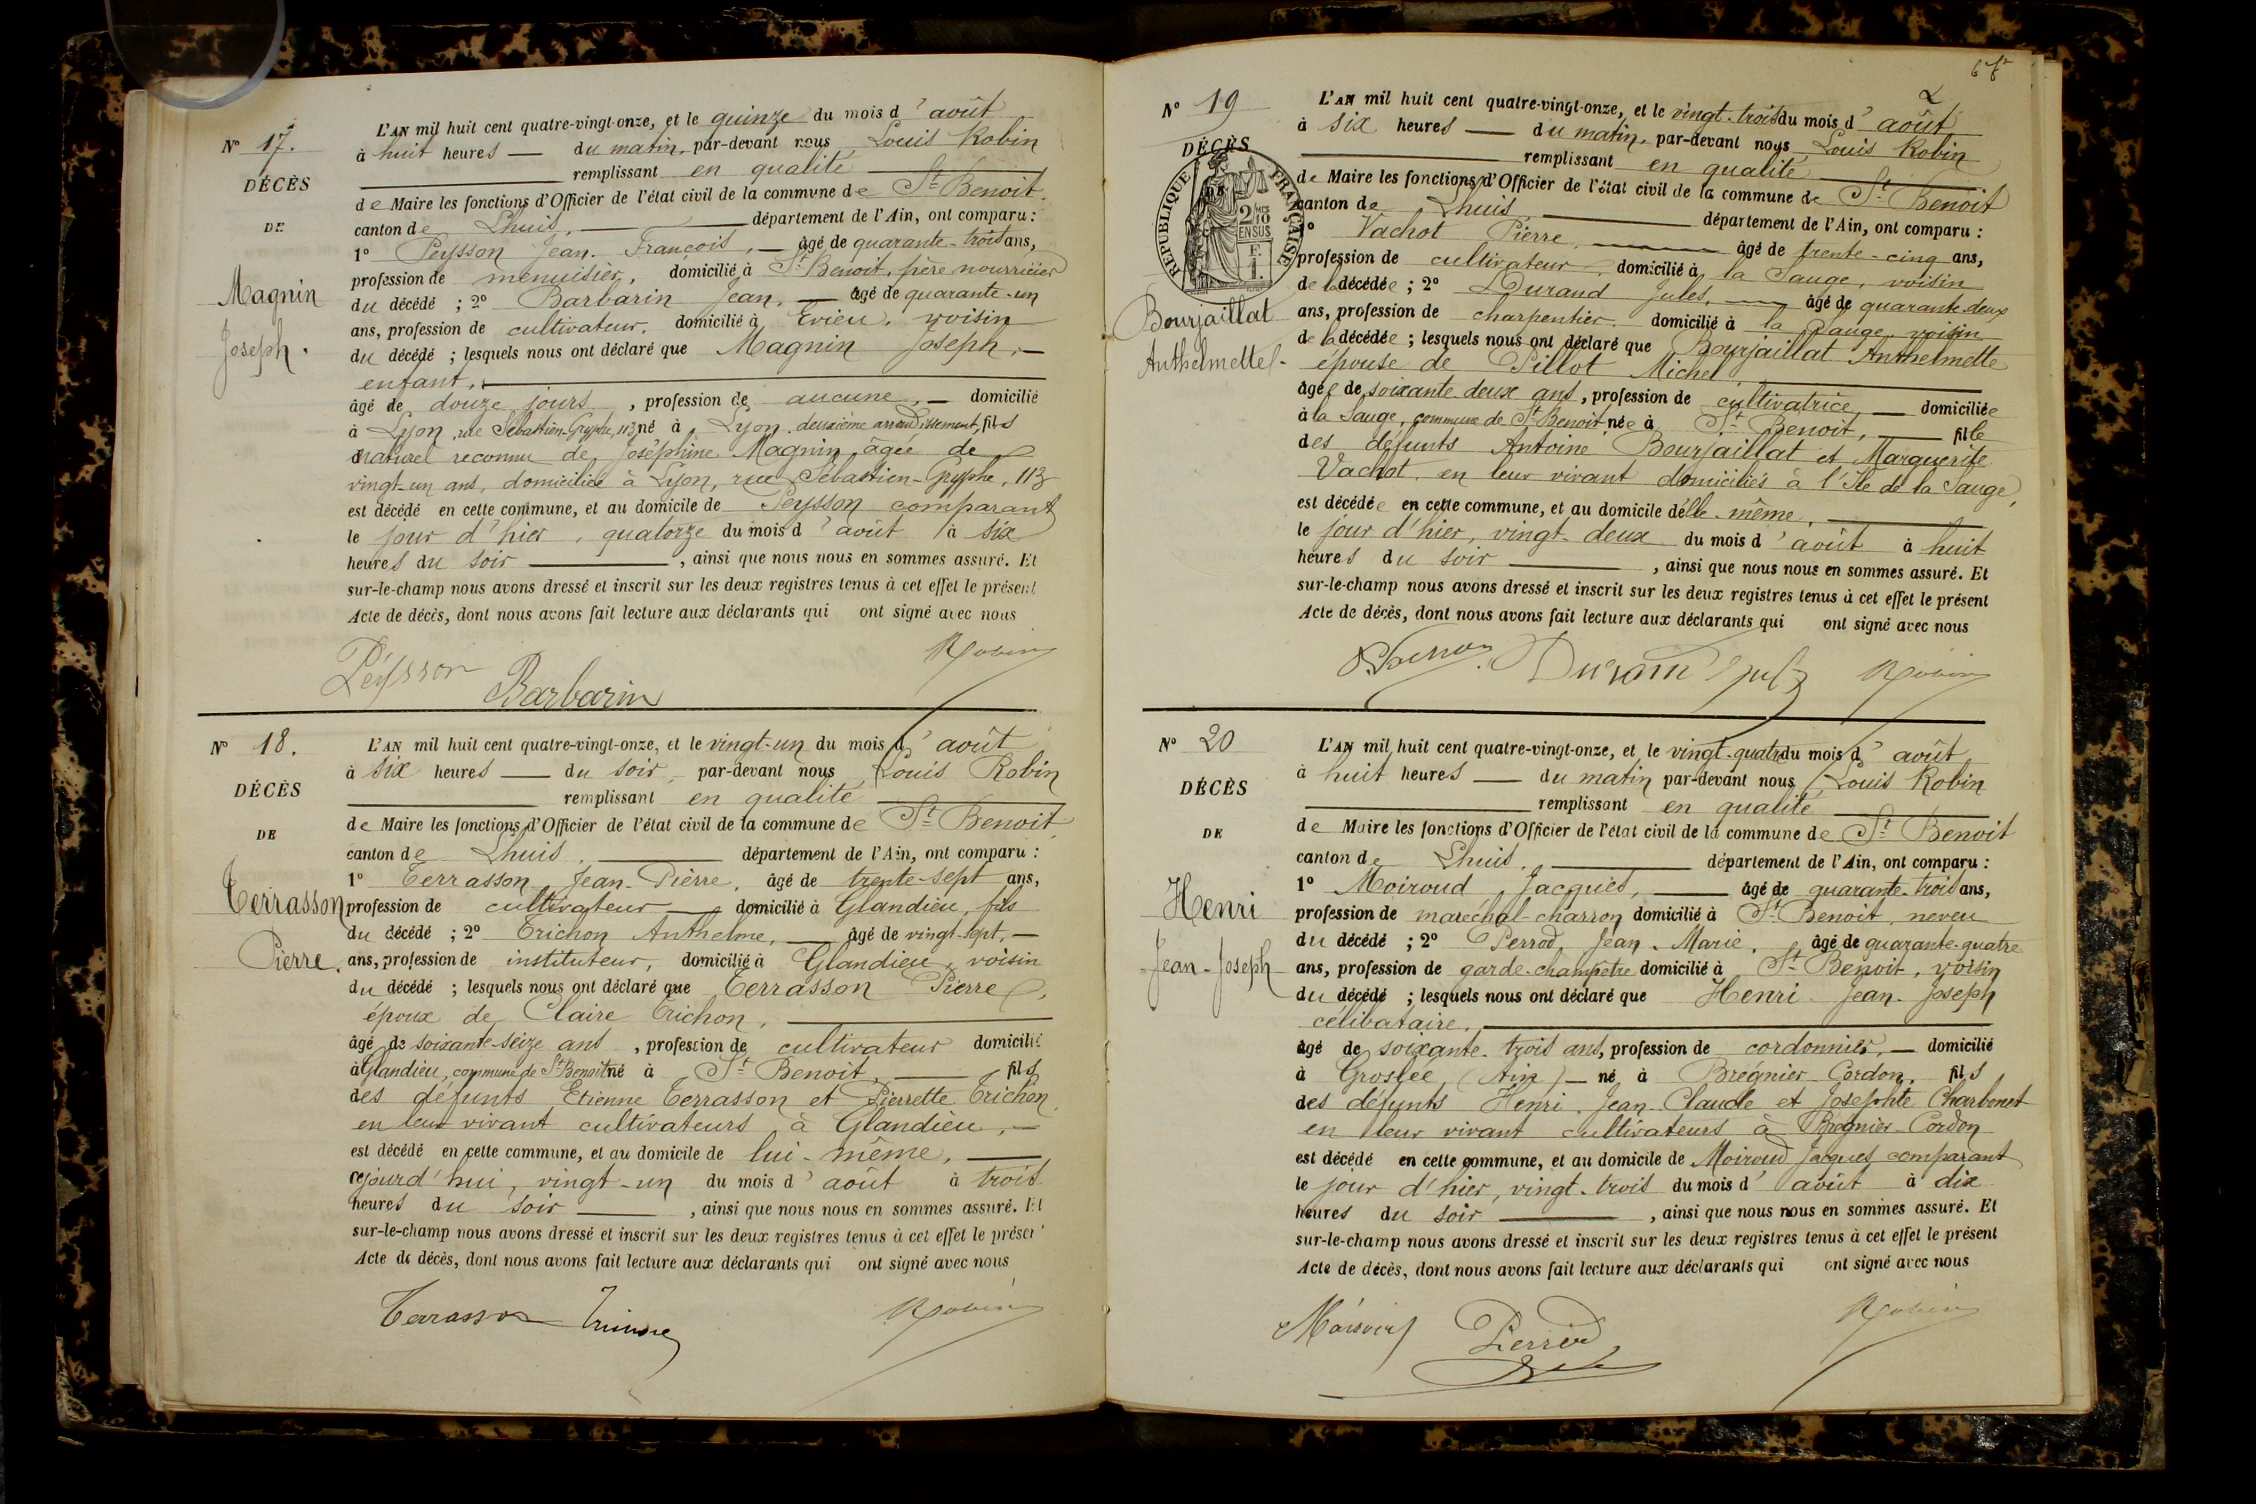 N° 17.
DÉCÈS
DE
Magnin
Joseph.
L'AN mil huit cent quatre-vingt-onze, et le quinze du mois d'août
à huit heures — du matin, par-devant nous Louis Robin
remplissant en qualité
de Maire les fonctions d'Officier de l'état civil de la commune de St Benoit.
canton de Lhuis, département de l'Ain, ont comparu :
1° Peysson Jean-François, — âgé de quarante-trois ans,
profession de menuisier, domicilié à St Benoit, père nourricier
du décédé ; 2° Barbarin Jean, — âgé de quarante-un
ans, profession de cultivateur, domicilié à Evieu, voisin
du décédé ; lesquels nous ont déclaré que Magnin Joseph, —
enfant,
âgé de douze jours, profession de aucune, — domicilié
à Lyon, rue Sébastien-Gryphe, 113 né à Lyon, deuxième arrondissement, fils
naturel reconnu de Joséphine Magnin âgée de
vingt-un ans, domiciliée à Lyon, rue Sébastien-Gryphe, 113
est décédé en cette commune, et au domicile de Peysson comparant
le jour d'hier, quatorze du mois d'août à six
heures du soir, ainsi que nous nous en sommes assuré. Et
sur-le-champ nous avons dressé et inscrit sur les deux registres tenus à cet effet le présent
Acte de décès, dont nous avons fait lecture aux déclarants qui ont signé avec nous
Peysson Barbarin Robin
N° 18.
DÉCÈS
DE
Terrasson
Pierre.
L'AN mil huit cent quatre-vingt-onze, et le vingt-un du mois d'août
à six heures — du soir, par-devant nous Louis Robin
remplissant en qualité
de Maire les fonctions d'Officier de l'état civil de la commune de St Benoit,
canton de Lhuis, département de l'Ain, ont comparu :
1° Terrasson Jean-Pierre, âgé de trente-sept ans,
profession de cultivateur — domicilié à Glandieu, fils
du décédé ; 2° Trichon Anthelme, — âgé de vingt-sept, —
ans, profession de instituteur, domicilié à Glandieu, voisin
du décédé ; lesquels nous ont déclaré que Terrasson Pierre,
époux de Claire Trichon,
âgé de soixante-seize ans, profession de cultivateur domicilié
à Glandieu, commune de St Benoit né à St Benoit, — fils
des défunts Etienne Terrasson et Pierrette Trichon
en leur vivant cultivateurs à Glandieu, —
est décédé en cette commune, et au domicile de lui-même,
cejourd'hui, vingt-un du mois d'août à trois
heures du soir, ainsi que nous nous en sommes assuré. Et
sur-le-champ nous avons dressé et inscrit sur les deux registres tenus à cet effet le présen
Acte de décès, dont nous avons fait lecture aux déclarants qui ont signé avec nous
Terrasson Robin
N° 19
DÉCÈS
DE
RÉPUBLIQUE FRANÇAISE
2 10
EN SUS
Bourjaillat
Anthelmette
L'AN mil huit cent quatre-vingt-onze, et le vingt-trois du mois d'août
à six heures — du matin, par-devant nous Louis Robin
remplissant en qualité
de Maire les fonctions d'Officier de l'état civil de la commune de St Benoit
canton de Lhuis département de l'Ain, ont comparu :
1° Vachot Pierre, âgé de trente-cinq ans,
profession de cultivateur, domicilié à la Sauge, voisin
de la décédée ; 2° Durand Jules, — âgé de quarante-deux
ans, profession de charpentier domicilié à la Sauge, voisin
de la décédée ; lesquels nous ont déclaré que Bourjaillat Anthelmette
épouse de Pillot Michel
âgée de soixante deux ans, profession de cultivatrice, — domiciliée
à la Sauge, commune de St Benoit née à St Benoit, — fille
des défunts Antoine Bourjaillat et Marguerite
Vachot, en leur vivant domiciliés à l'Ile de la Sauge,
est décédée en cette commune, et au domicile d'elle-même,
le jour d'hier, vingt-deux du mois d'août à huit
heures du soir, ainsi que nous nous en sommes assuré. Et
sur-le-champ nous avons dressé et inscrit sur les deux registres tenus à cet effet le présent
Acte de décès, dont nous avons fait lecture aux déclarants qui ont signé avec nous
Durand Jules Robin
N° 20
DÉCÈS
DE
Henri
Jean-Joseph
L'AN mil huit cent quatre-vingt-onze, et le vingt-quatre du mois d'août
à huit heures — du matin par-devant nous Louis Robin
remplissant en qualité
de Maire les fonctions d'Officier de l'état civil de la commune de St Benoit
canton de Lhuis, département de l'Ain, ont comparu :
1° Moiroud Jacques, — âgé de quarante-trois ans,
profession de maréchal-charron domicilié à St Benoit, neveu
du décédé ; 2° Perrod Jean-Marie, âgé de quarante-quatre
ans, profession de garde-champêtre domicilié à St Benoit, voisin
du décédé ; lesquels nous ont déclaré que Henri Jean-Joseph
célibataire,
âgé de soixante-trois ans, profession de cordonnier, — domicilié
à Groslée (Ain) — né à Brégnier-Cordon, fils
des défunts Henri Jean-Claude et Josephte Charbonet
en leur vivant cultivateurs à Brégnier-Cordon
est décédé en cette commune, et au domicile de Moiroud Jacques comparant
le jour d'hier, vingt-trois du mois d'août à dix
heures du soir, ainsi que nous nous en sommes assuré. Et
sur-le-champ nous avons dressé et inscrit sur les deux registres tenus à cet effet le présent
Acte de décès, dont nous avons fait lecture aux déclarants qui ont signé avec nous
Perrod Robin